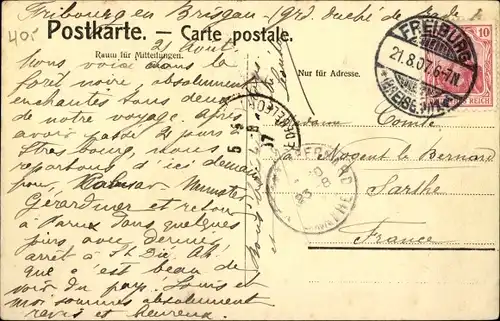 Fribourg en Brisgau (Grd. Duché de Bade)
40s
Postkarte. – Carte postale.
Raum für Mitteilungen.
Nur für Adresse.
21 Août.
Nous voici dans la
forêt noire, absolument
enchantés tous deux
de notre voyage. Après
avoir passé 2 jours à
Strasbourg, nous
repartons d'ici demain
pour Colmar Munster,
Gérardmer et retour
à dans quelques
jours avec dernier
arrêt à St Dié. Ah!
que c'est beau de
voir du pays. Louis et
moi sommes absolument
ravis et heureux.
FREIBURG
21.8.07. 6-7N.
(BREISGAU)
10
REICH
Madame Comte
Nogent le Bernard
Sarthe
France